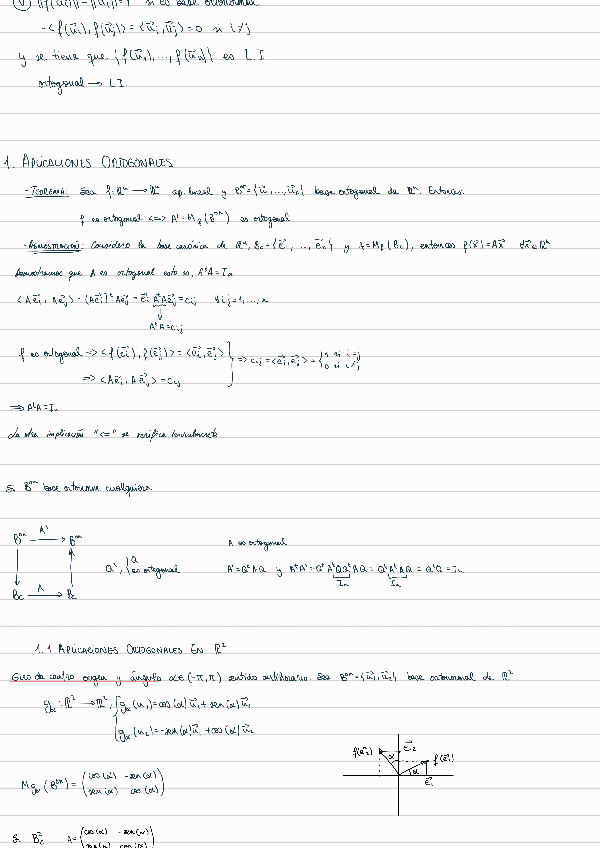 - <f(u⃗i), f(u⃗j)> = <u⃗i, u⃗j> = 0 si i≠j
y se tiene que {f(u⃗1), ..., f(u⃗n)} es L.I.
ortogonal → L.I.
1. APLICACIONES ORTOGONALES
- TEOREMA: Sea f: ℝⁿ → ℝⁿ ap. lineal y Bᵒⁿ = {u⃗1, ..., u⃗n} base ortogonal de ℝⁿ. Entonces:
f es ortogonal <=> A' = Mf(Bᵒⁿ) es ortogonal
- DEMOSTRACIÓN: Considero la base canónica de ℝⁿ, Bc = {e⃗1, ..., e⃗n} y A = Mf(Bc), entonces f(x⃗) = Ax⃗ ∀x⃗ ∈ ℝⁿ
Demostremos que A es ortogonal esto es, AᵗA = In
<Ae⃗i, Ae⃗j> = (Ae⃗i)ᵗ Ae⃗j = e⃗i AᵗAe⃗j = cij ∀i,j = 1, ..., n
AᵗA = cij
f es ortogonal => <f(e⃗i), f(e⃗j)> = <e⃗i, e⃗j> } => cij = <e⃗i, e⃗j> = {1 si i=j 0 si i≠j
=> <Ae⃗i, Ae⃗j> = cij
=> AᵗA = In
La otra implicación "<=" se verifica
Si Bᵒⁿ base ortonorm cualquiera
Bᵒⁿ A' → Bᵒⁿ
A es ortogonal
Qᵗ, { Q es ortogonal
A' = QᵗAQ y A'ᵗA' = QᵗAᵗQQᵗAQ = QᵗAᵗAQ = QᵗQ = In
In In
Bc A → Bc
1.1 APLICACIONES ORTOGONALES EN ℝ²
Giro de centro origen y ángulo α ∈ (-π, π) sentido antihorario. Sea Bᵒⁿ = {u⃗1, u⃗2} base ortonormal de ℝ²
gα: ℝ² → ℝ², { gα(u1) = cos(α)u⃗1 + sen(α)u⃗2
gα(u2) = -sen(α)u⃗1 + cos(α)u⃗2
f(e⃗2) e⃗2 f(e⃗1)
α α
e⃗1
Mgα(Bᵒⁿ) = (cos(α) -sen(α)
sen(α) cos(α))
Si B²c A = (cos(α) -sen(α)
sen(α) cos(α))